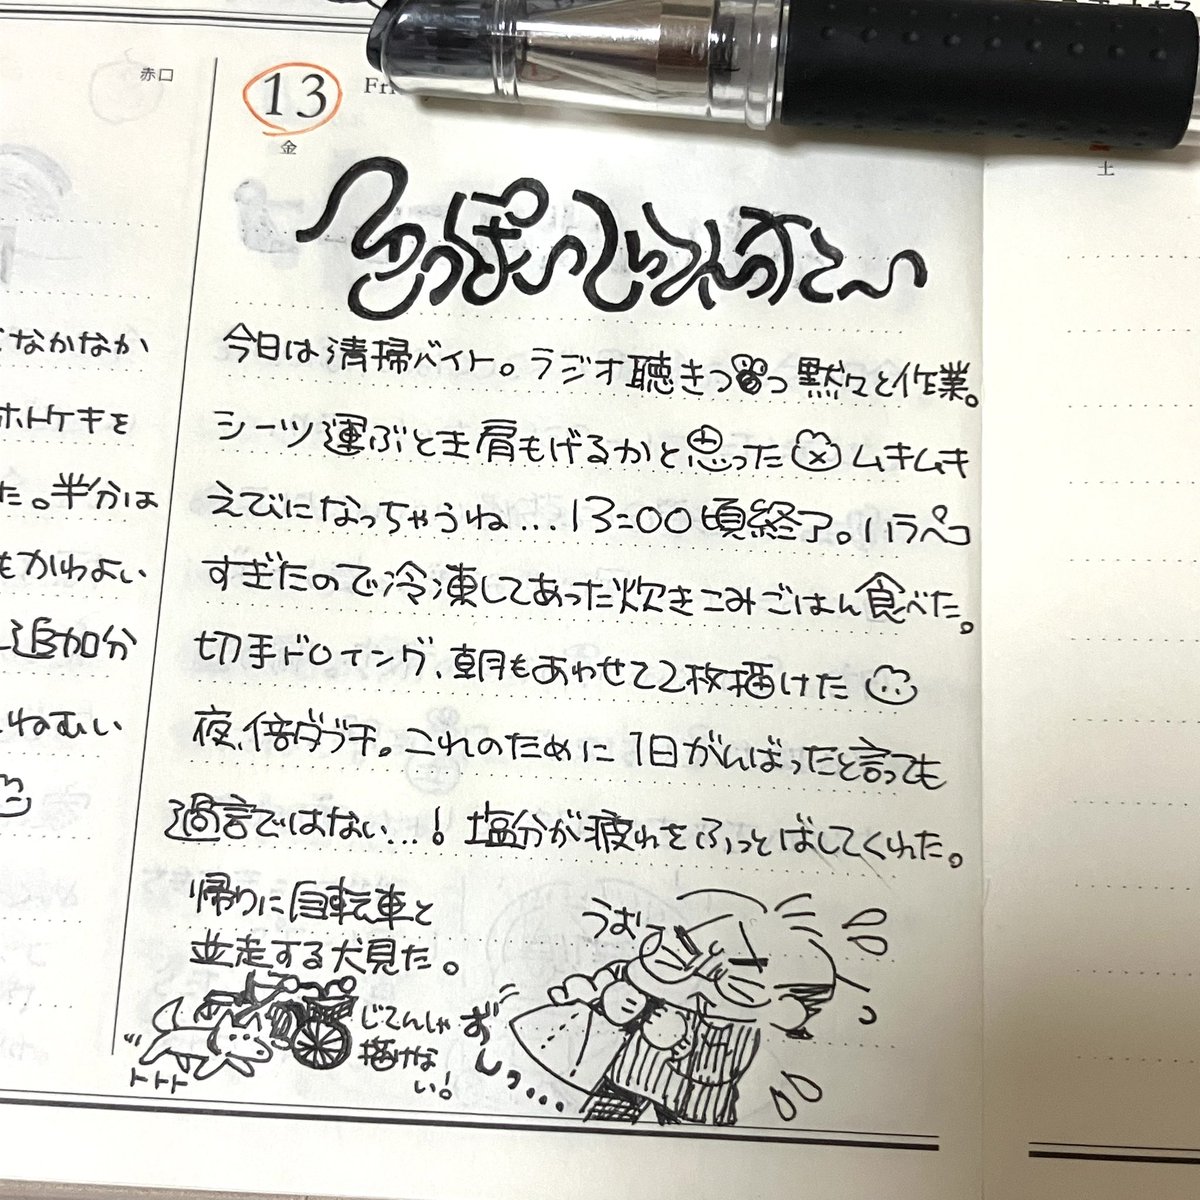 赤口
13
金
土
なかなか
ホトケキを
た。半分は
もかわよい
追加分
ねむい
今日は清掃バイト。ラジオ聴きつつ黙々と作業。
シーツ運ぶとき肩もげるかと思った ムキムキ
えびになっちゃうね…13:00頃終了。ハラペコ
すぎたので冷凍してあった炊きこみごはん食べた。
切手ドローイング、朝もあわせて2枚描けた
夜、倍ダブチ。これのために1日がんばったと言っても
過言ではない…!塩分が疲れをふっとばしてくれた。
帰りに自転車と
並走する犬見た。
じてんしゃ
描けな
い!
トトト
うお
ずしっ…